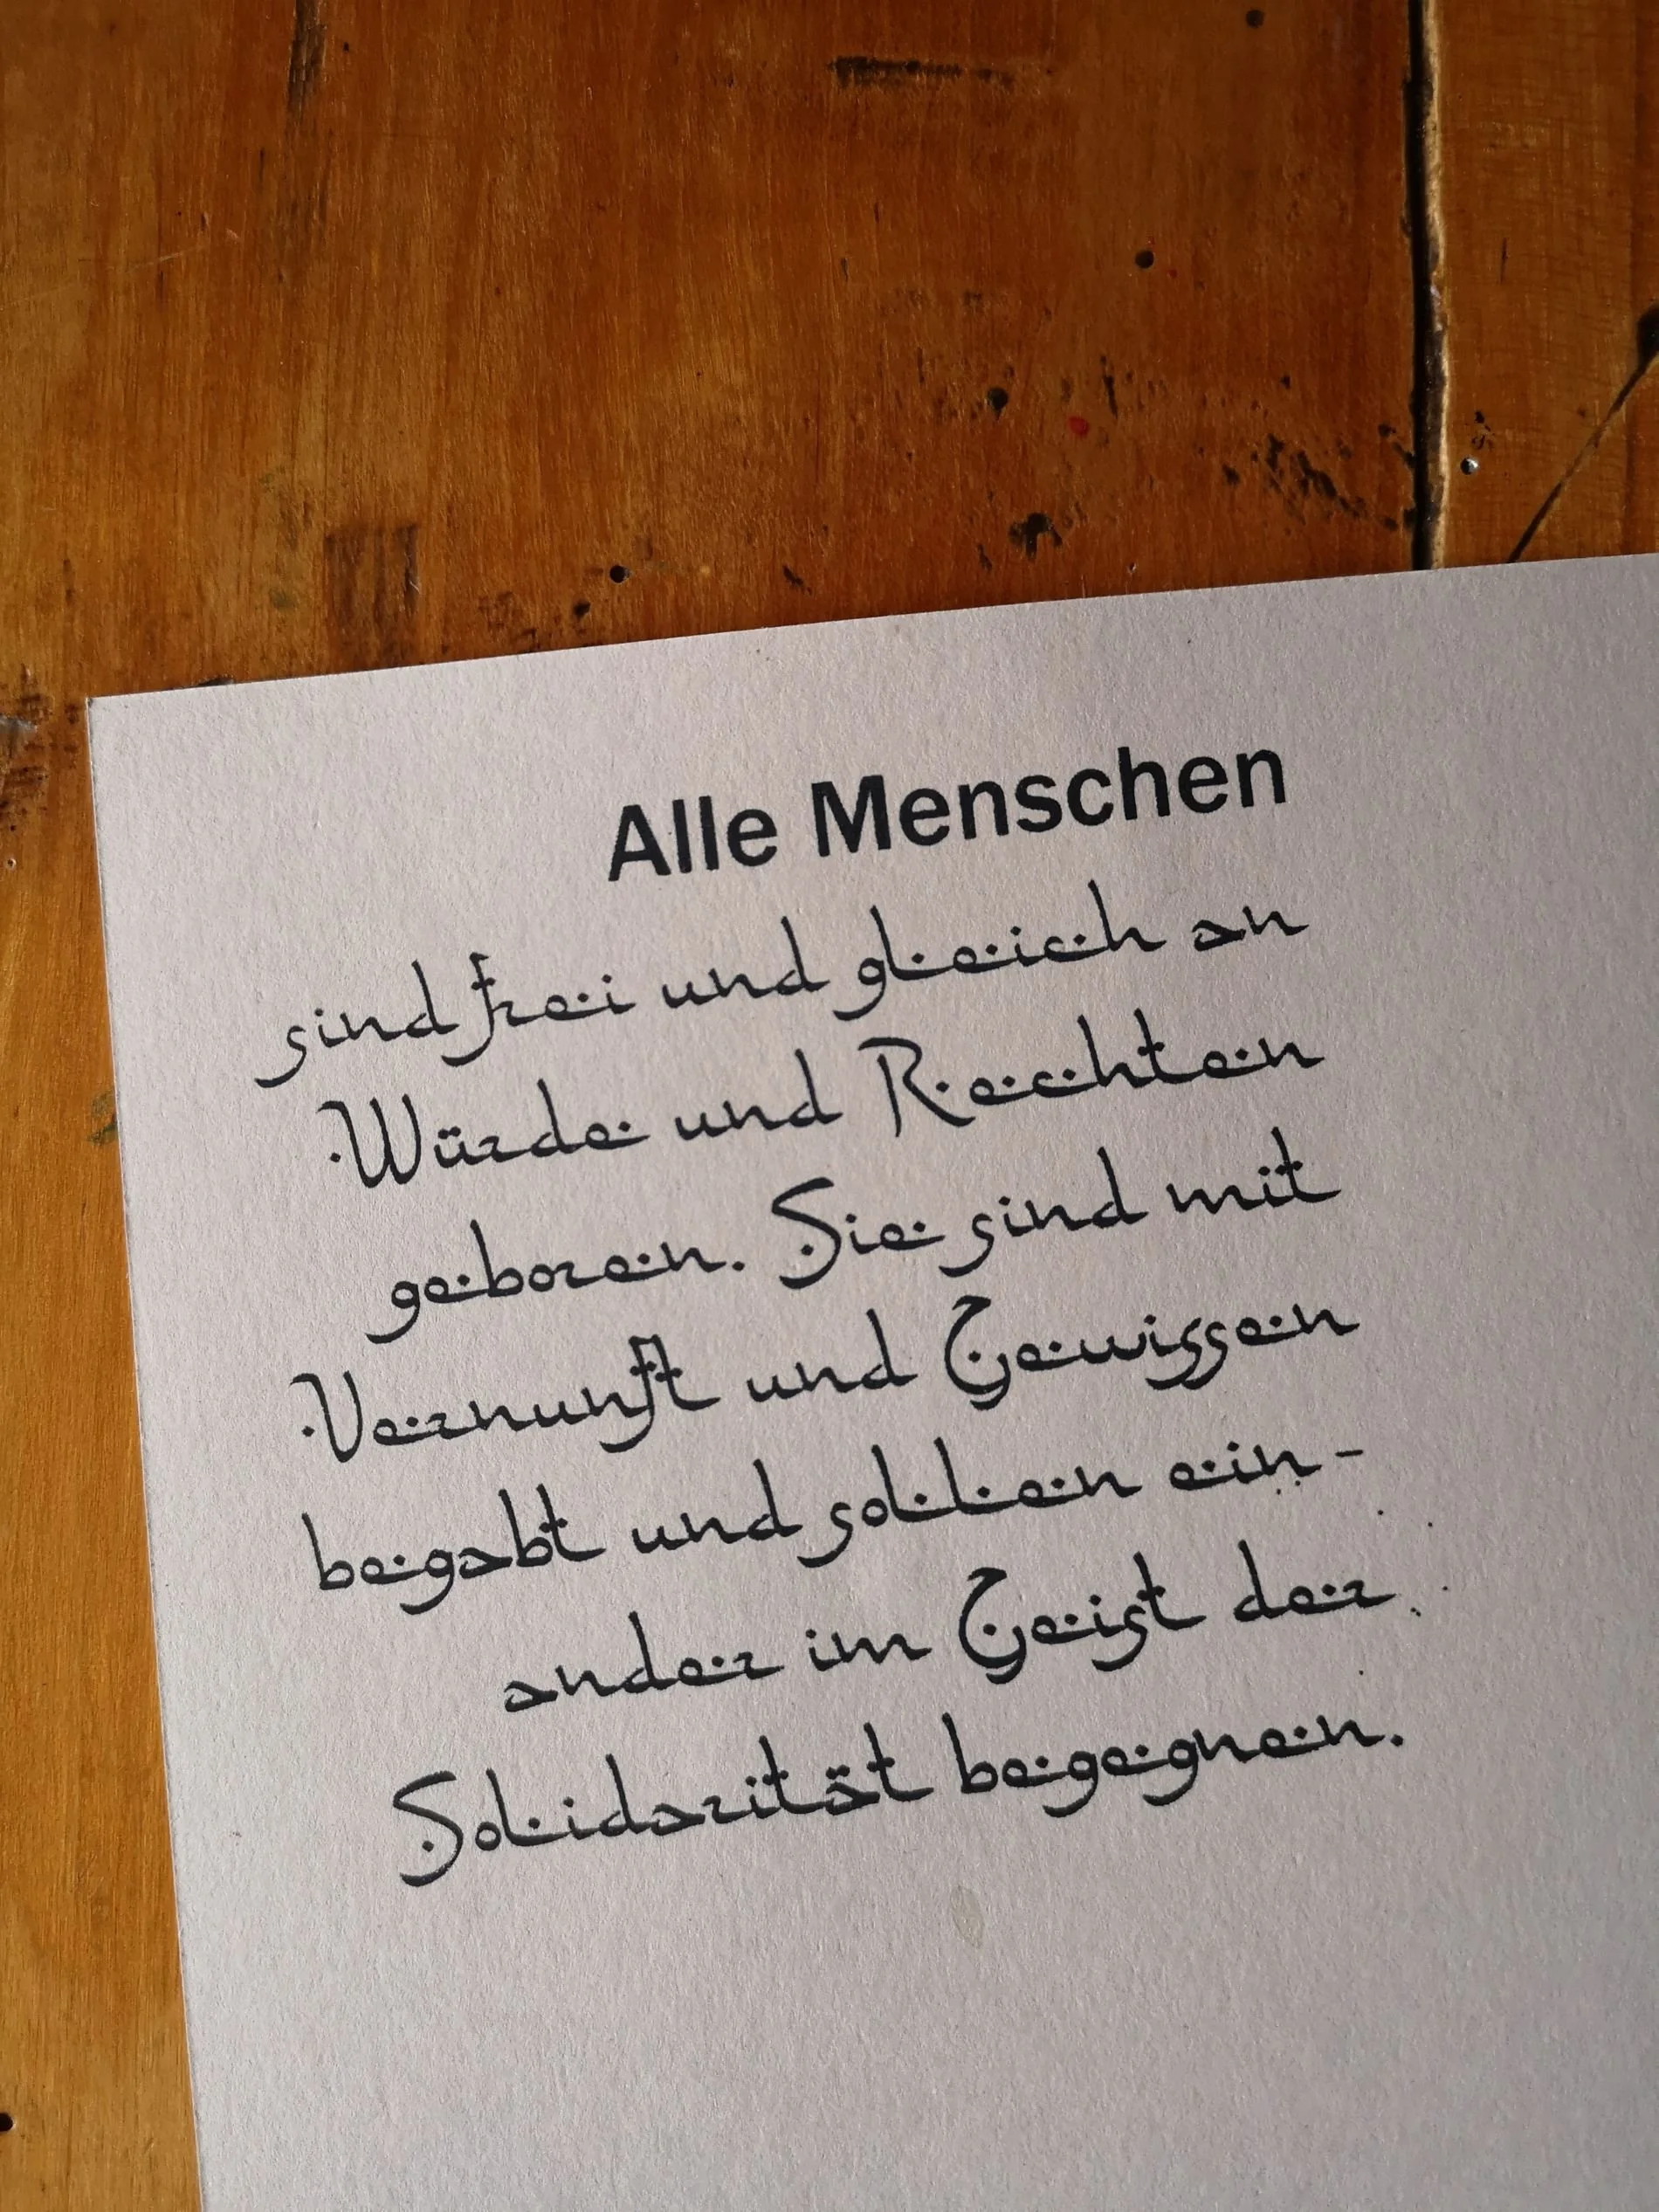 Alle Menschen
sind frei und gleich an
Würde und Rechten
geboren. Sie sind mit
Vernunft und Gewissen
begabt und sollen ein-
ander im Geist der
Solidarität begegnen.